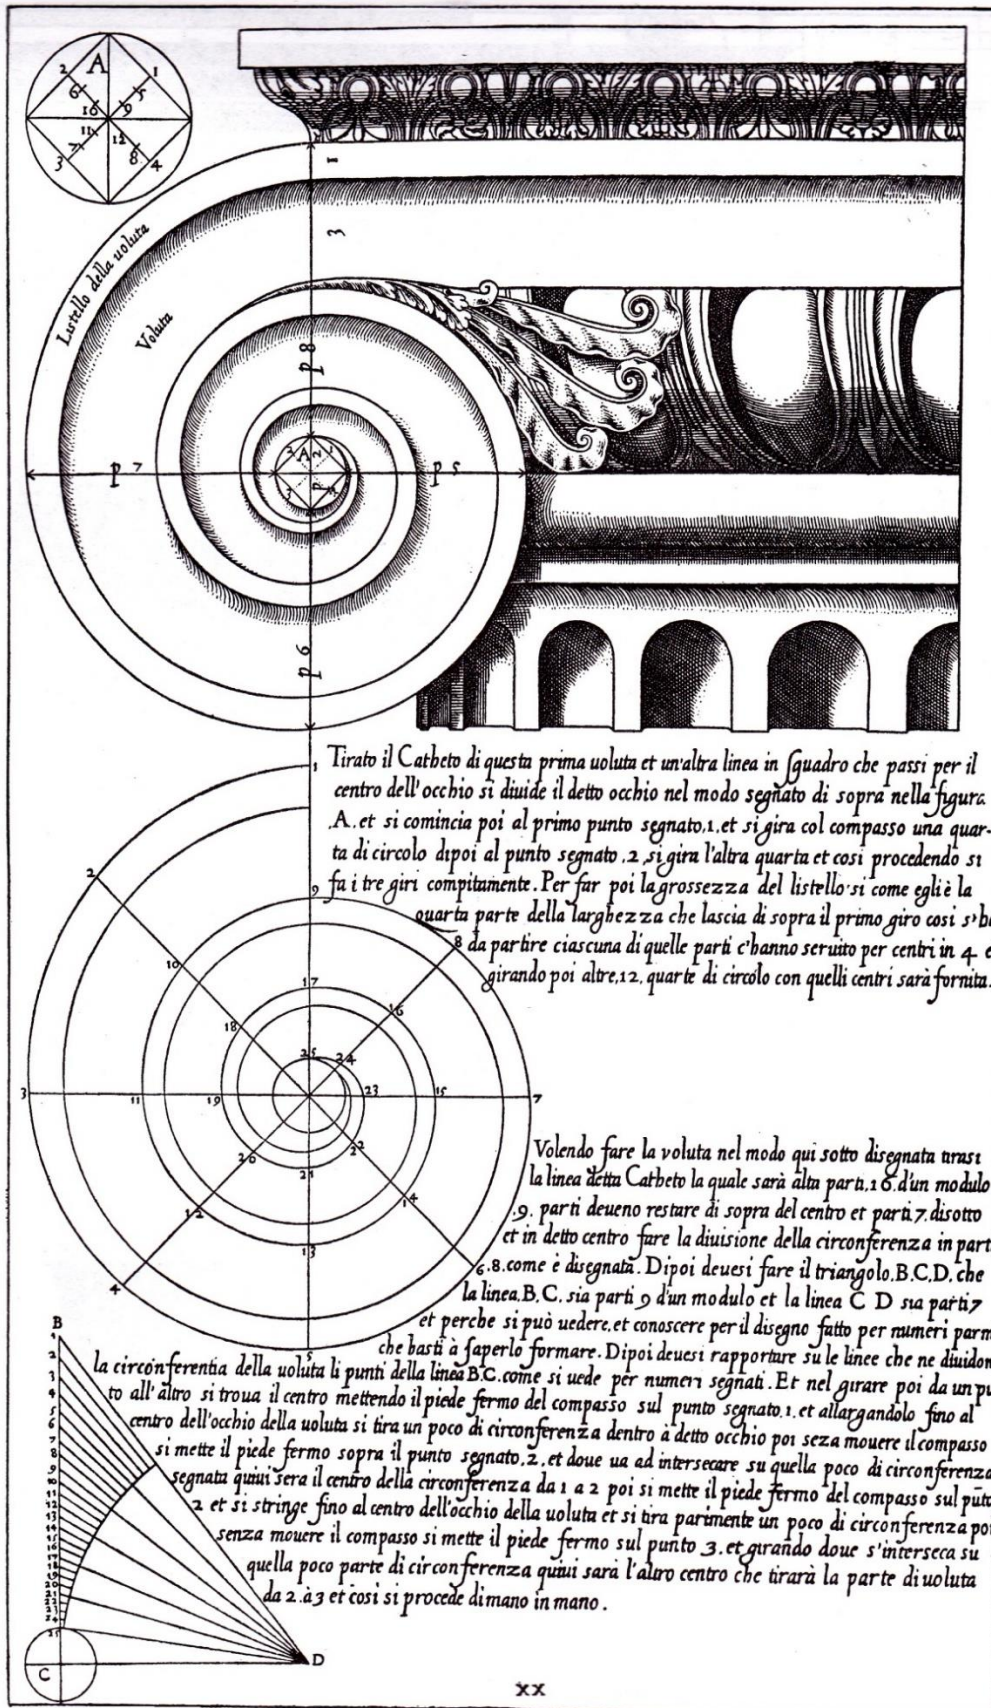 A
2
1
6
5
10
9
11
12
7
8
3
4
1
3
Listello della uoluta
Voluta
p 8
A
2
1
3
p 7
p 5
p 6
Tirato il Catheto di questa prima uoluta et un'altra linea in squadro che passi per il
centro dell'occhio si diuide il detto occhio nel modo segnato di sopra nella figura
.A. et si comincia poi al primo punto segnato,1, et si gira col compasso una quar-
ta di circolo dipoi al punto segnato .2, si gira l'altra quarta et cosi procedendo si
fa i tre giri compitamente. Per far poi la grossezza del listello si come egli è la
quarta parte della larghezza che lascia di sopra il primo giro cosi s'ha
da partire ciascuna di quelle parti c'hanno seruito per centri in 4 e
girando poi altre,12, quarte di circolo con quelli centri sarà fornita.
1
2
9
8
10
17
16
18
25
24
3
11
19
23
15
7
20
21
22
12
14
13
4
6
5
Volendo fare la voluta nel modo qui sotto disegnata tirasi
la linea detta Catheto la quale sarà alta parti,16 d'un modulo
.9. parti deueno restare di sopra del centro et parti 7. disotto
et in detto centro fare la diuisione della circonferenza in parti
.8. come è disegnata. Dipoi deuesi fare il triangolo.B.C.D. che
la linea.B.C. sia parti 9 d'un modulo et la linea C D sia parti 7
et perche si può uedere, et conoscere per il disegno fatto per numeri parmi
che basti à saperlo formare. Dipoi deuesi rapportare su le linee che ne diuidono
la circonferentia della uoluta li punti della linea B.C. come si uede per numeri segnati. Et nel girare poi da un pu
to all'altro si troua il centro mettendo il piede fermo del compasso sul punto segnato,1, et allargandolo fino al
centro dell'occhio della uoluta si tira un poco di circonferenza dentro à detto occhio poi seza mouere il compasso
si mette il piede fermo sopra il punto segnato,2, et doue ua ad intersecare su quella poco di circonferenza
segnata quiui sera il centro della circonferenza da 1 a 2 poi si mette il piede fermo del compasso sul pūto
2 et si stringe fino al centro dell'occhio della uoluta et si tira parimente un poco di circonferenza poi
senza mouere il compasso si mette il piede fermo sul punto 3. et girando doue s'interseca su
quella poco parte di circonferenza quiui sarà l'altro centro che tirarà la parte di uoluta
da 2. à 3 et cosi si procede di mano in mano.
B
1
2
3
4
5
6
7
8
9
10
11
12
13
14
15
16
17
18
19
20
21
22
23
24
25
C
D
xx